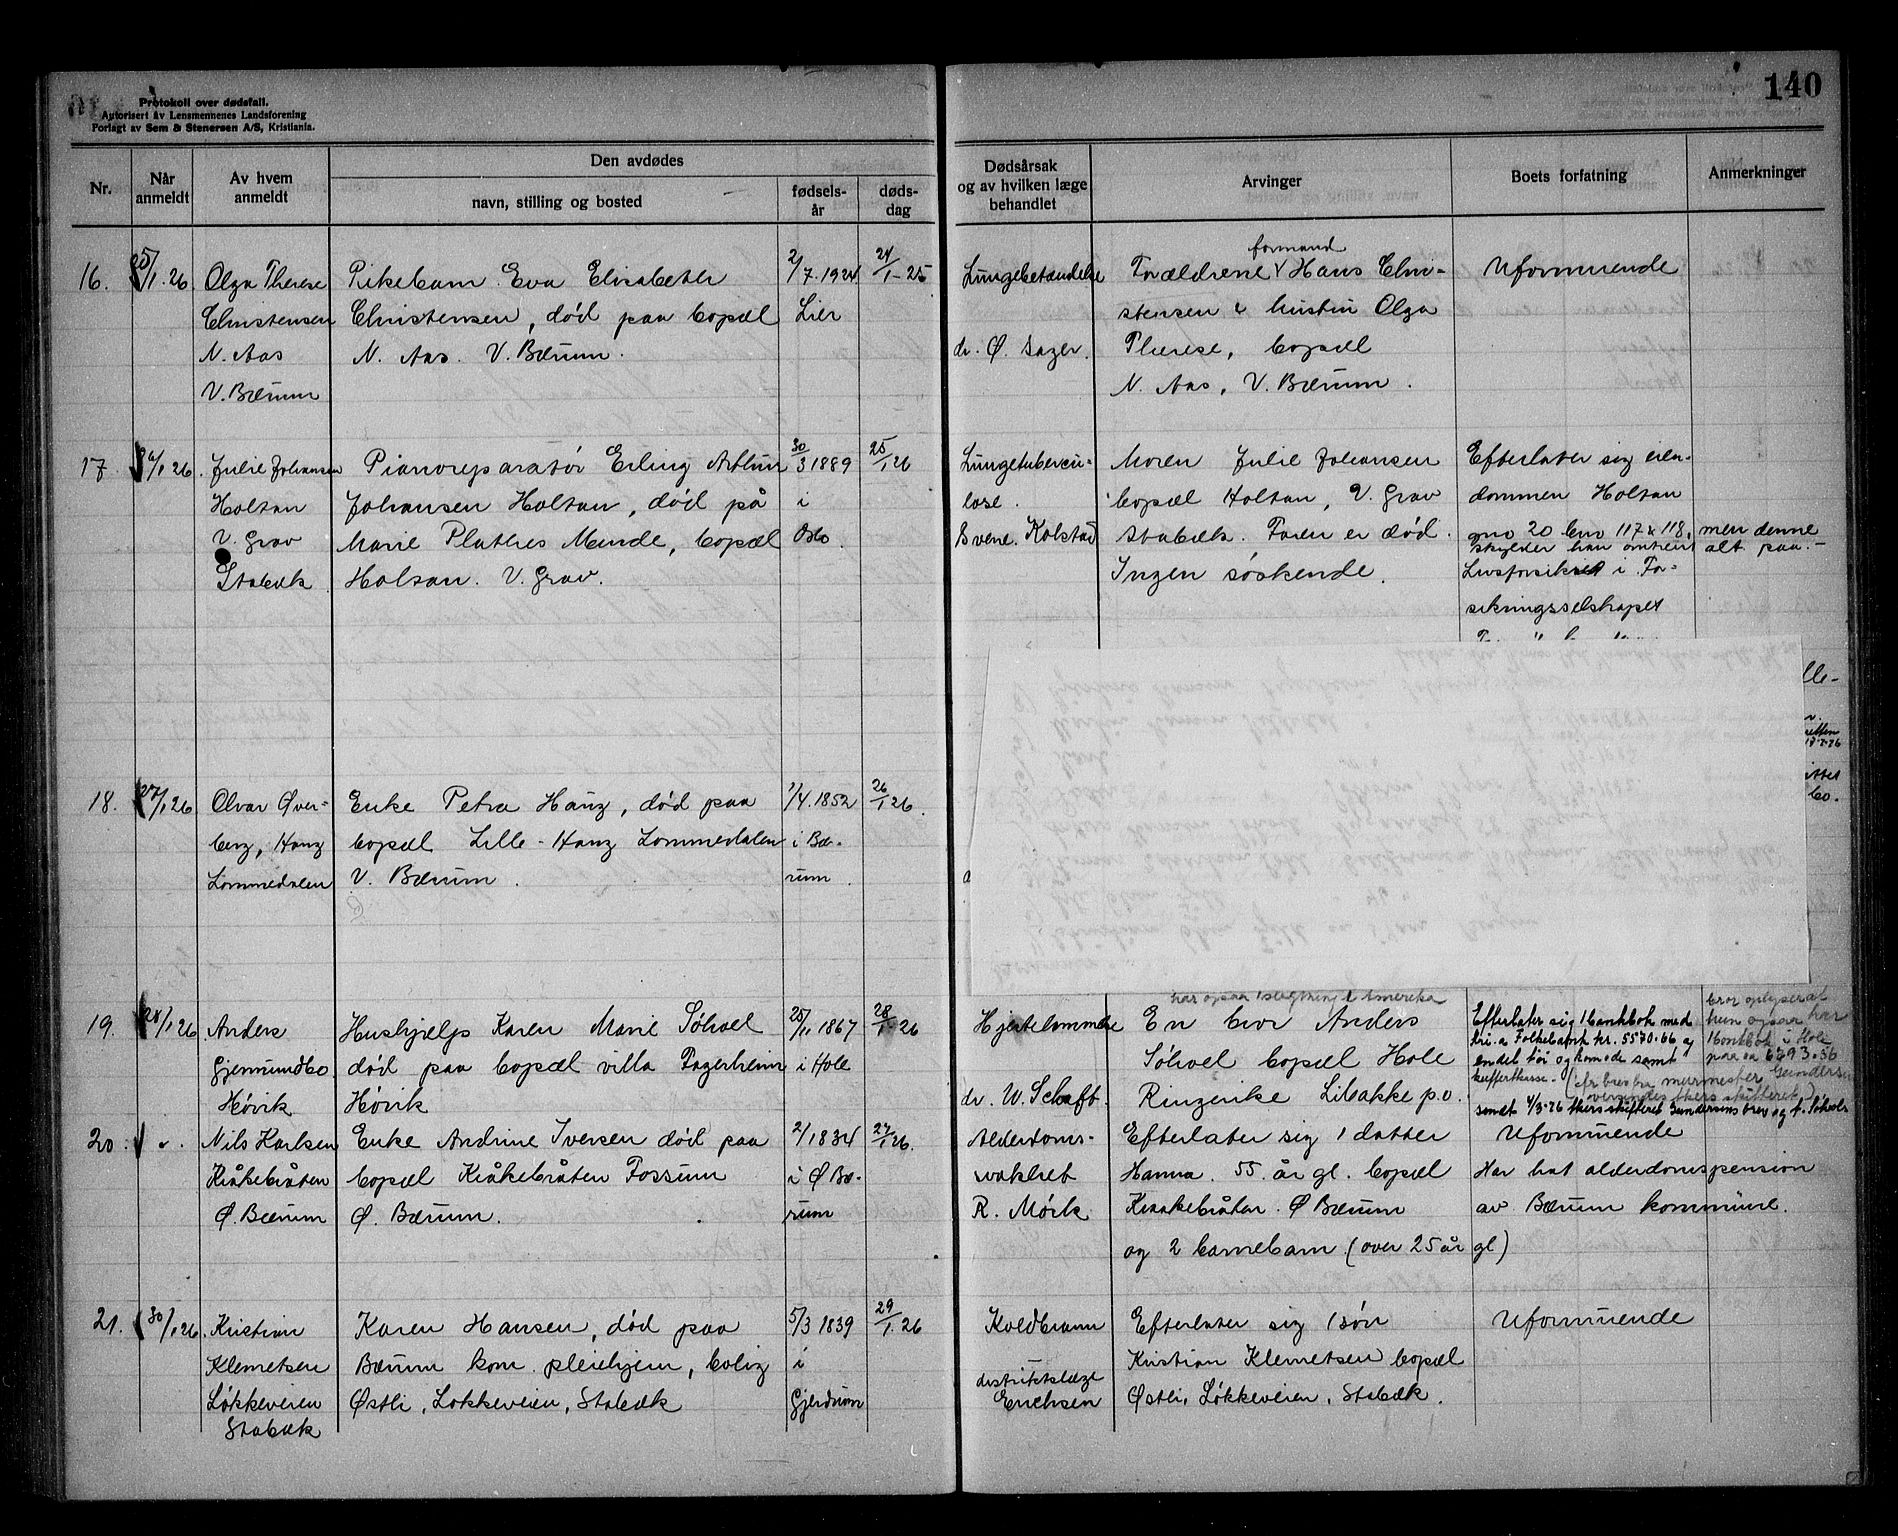 Protokoll over dødsfall.
Autorisert av Lensmennenes Landsforening
Forlagt av Sem & Stenersen A/S, Kristiania.
140
Nr.
Når anmeldt
Av hvem anmeldt
Den avdødes
navn, stilling og bosted
fødsels-år
døds-dag
Dødsårsak og av hvilken læge behandlet
Arvinger
Boets forfatning
Anmerkninger
16. 25/1.26 Olga Therese Pikebarn Eva Elisabeth 2/7.1924 24/1-25 Lungebetændelse Forældrene formand Hans Chri- Uformuende
Christensen Christensen, død paa bopæl Lier stensen & hustru Olga
N. Aas N. Aas. V. Bærum. dr. Ø. Therese, bopæl
V. Bærum N. Aas, V. Bærum.
17. 26/1 26. Julie Johansen Pianoreparatør Erling Arthur 30/3 1889 25/1 26 Lungetubercu- Moren Julie Johansen Efterlater sig eien-
Holtan Johansen Holtan, død på i lose. bopæl Holtan, V. Grav dommen Holtan
V. Grav Marie Plathes Minde, bopæl Oslo. Svene. Kolstad Stabæk. Faren er død. gno 20 bno 117 & 118, men denne
skylder han omtrent alt paa. -
Stabæk Holtan. V. Grav. Ingen søskende. Livsforsikret i Fo-
sikringsselskapet
18. 27/1 26 Olvar Øver- Enke Petra Haug, død paa 1/4.1852 26/1 26.
berg, Haug bopæl Lille-Haug Lommedalen i Bæ-
Lommedalen V. Bærum. rum.
har ogsaa 1 i Amerika
19. 28/1 26 Anders Hushjælp Karen Marie Sølvol 25/11 1867 28/1-26 Hjertelammelse En bror Anders Efterlater sig 1 bankbok med bror oplyser at
Gjermundbo død paa bopæl villa Fagerheim i Hole Sølvol bopæl Hole Kri.a Folkebank kr. 5570.66 og hun ogsaa har
endel tøi og komode samt 1 bankbok i Hole
kuffertkasse. paa ca 6793.56
Høvik Høvik dr. W. Schaft. Ringerike Libakke p.o. murmester Gundersen
sendt 4/3-26 skifteret Gundersens brev og
20. " Nils Karlsen Enke Andrine Iversen død paa 2/1834 27/1 26. Alderdoms- Efterlater sig 1 datter Uformuende
Kråkebråten bopæl Kråkebråten Fossum i Ø. Bæ- svakhet Hanna. 55 år gl. bopæl Har hat alderdomspension
Ø. Bærum Ø. Bærum. rum R. Mørk Kraakebråten. Ø Bærum av Bærum kommune.
og 2 barnebarn (over 25 år gl)
21. 30/1 26. Kristian Karen Hansen, død paa 5/3 1839 29/1.26 Koldbrann Efterlater sig 1 søn Uformuende
Klemetsen Bærum kom. pleiehjem, bolig i distriktslæge Kristian Klemetsen bopæl
Løkkeveien Østli, Løkkeveien, Stabæk Gjerdrum Erichsen Østli, Løkkeveien, Stabæk.
Stabæk